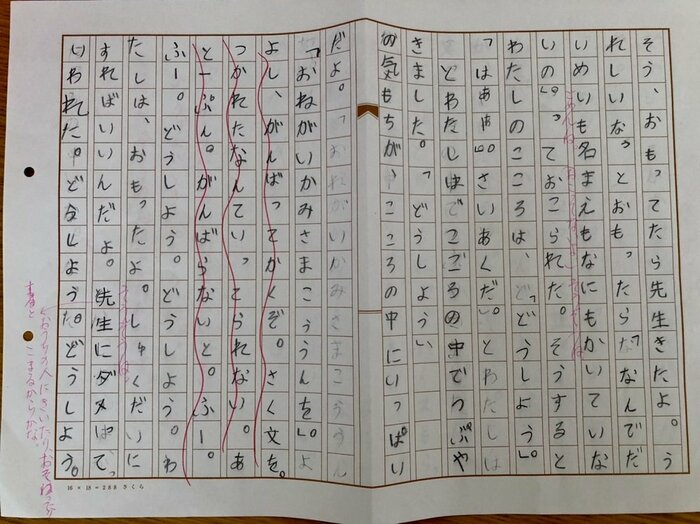 そう、おもってたら先生きたよ。う
れしいな。とおもったらな「なんでだ
いめいも名まえもなにもかいていな
いの」。っておこられた。そうすると
わたしのこころは、「どうしよう」。
「はぁはぁ」。さいあくだ。とわたしは
とわたしはこころの中でつぶや
きました。「どうしよう」
の気もちが、こころの中にいっぱい
だよ。「おねがいかみさまこううん
「おねがいかみさまこううんを」。よ
よし、がんばってかくぞ。さく文を。
つかれたなんていってられない。あ
と一ぷん。がんばらないと。ふー。
ふー。どうしよう。どうしよう。わ
たしは、おもったよ。しゅくだいに
すればいいんだよ。先生にダメぱて、
いわれた。どうしよう。どうしよう。
16×18=288 さくら